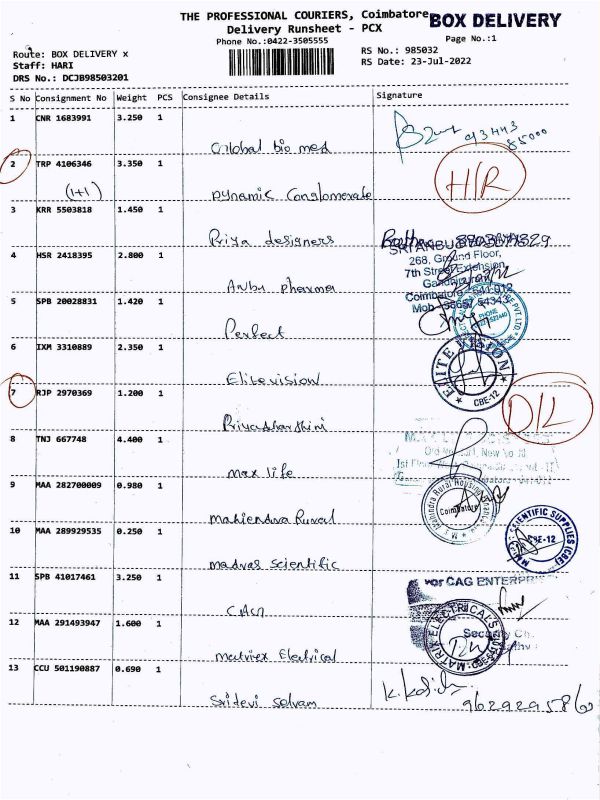 THE PROFESSIONAL COURIERS, Coimbatore
BOX DELIVERY
Delivery Runsheet - PCX
Phone No.:0422-3505555
Page No.:1
Route: BOX DELIVERY x
Staff: HARI
DRS No.: DCJB98503201
RS No.: 985032
RS Date: 23-Jul-2022
S No Consignment No Weight PCS Consignee Details Signature
1 CNR 1683991 3.250 1
Global bio med
93443
85000
2 TRP 4106346 3.350 1
(1+1)
Dynamic Conglomerate
H/R
3 KRR 5503818 1.450 1
Priya designers
4 HSR 2418395 2.800 1
Anbu pharma
268, Ground Floor,
7th Street Extension,
Gandhipuram
Coimbatore - 641 012
5 SPB 20028831 1.420 1
Perfect
PHONE
6 IXM 3310889 2.350 1
Elitevision
ELITE VISION
CBE-12
7 RJP 2970369 1.200 1
Priyadharshini
D/L
8 TNJ 667748 4.400 1
Max life
9 MAA 282700009 0.980 1
Mahiendra Rural
Mahindra Rural Housing
Coimbatore
10 MAA 289929535 0.250 1
Madras Scientific
SCIENTIFIC SUPPLIES (CBE)
CBE-12
11 SPB 41017461 3.250 1
CAGN
For CAG ENTERPRI
12 MAA 291493947 1.600 1
Matrix Electrical
MATRIX ELECTRICALS
13 CCU 501190887 0.690 1
Sridevi Selvam
9629295860